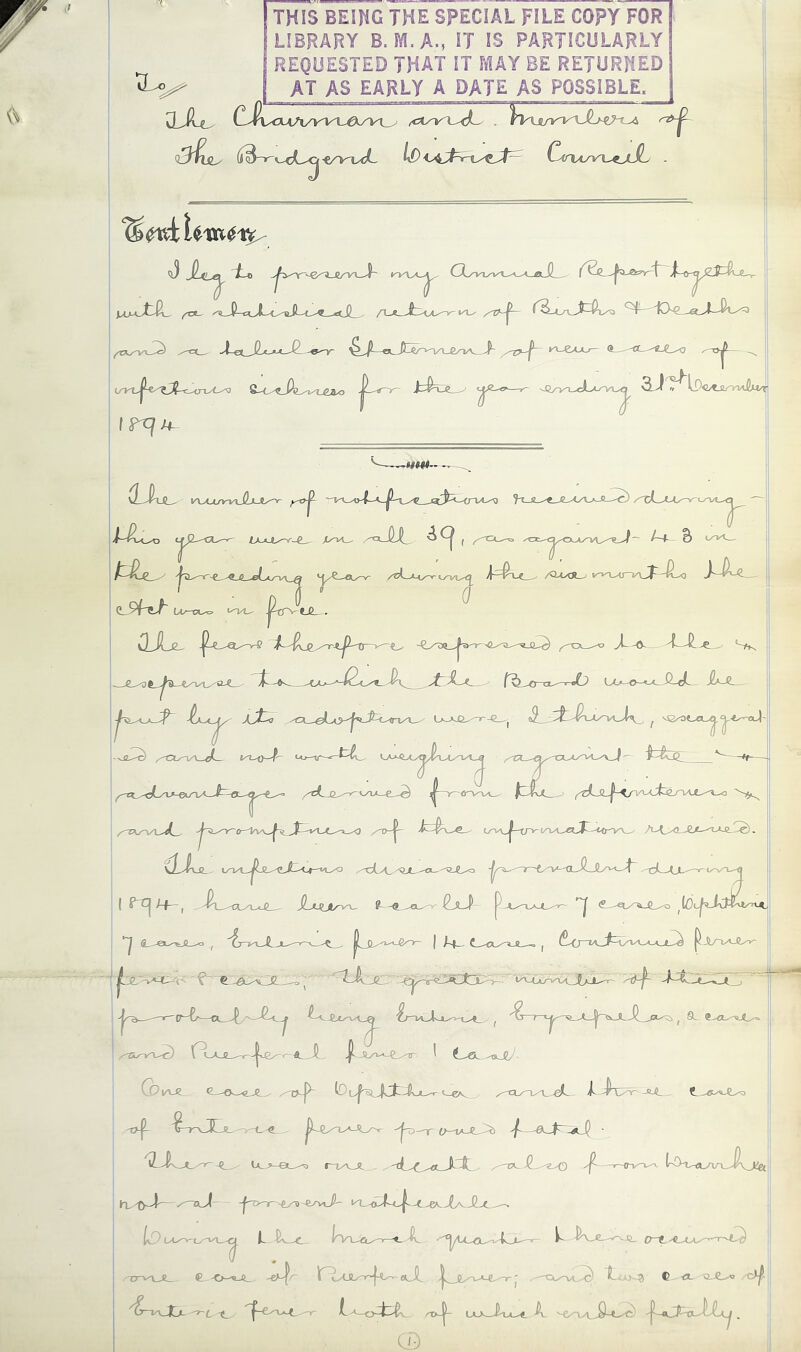 THIS BEING THE SPECIAL FILE COPY FOR
LIBRARY B. M. A., IT IS PARTICULARLY
REQUESTED THAT IT MAY BE RETURNED
AT AS EARLY A DATE AS POSSIBLE.
To
The Chairman and Members of
The Bridgend District Council.
Gentlemen
I beg to present my Annual Report together
with a statistical return of Births & Deaths
and a tabular Statement of new cases of
infectious sickness for the year ending 31st December
1894
The number of notifications received during
this year were in all 39, as against 43 in
the preceding year during the six months the
Act was in force.
The fears therefore expressed as to the
expense to which the Board would be
put by its adoption were, I think, exaggerat-
ed and not worth weighing against the
advantages derived from the definiteness
and promptness of the information received.
The infectious diseases prevalent during
1894, have been scarlet fever 7 cases, Diphtheria
7 cases, Enteric fever 14 cases, Continued fever
fever 8 cases, the greater number of these
probably being Enteric, Erysipelas, 2 cases
and Puerferal fever 1 case.
One case of Diphtheria and three cases
of Enteric fever proved fatal.
There was one death also from Diarrhœa
not at present notifeable.
During the March quarter there occurred
one case of Puerferal fever; and two cases of
Enteric Fever both of which ended fatally.
1.